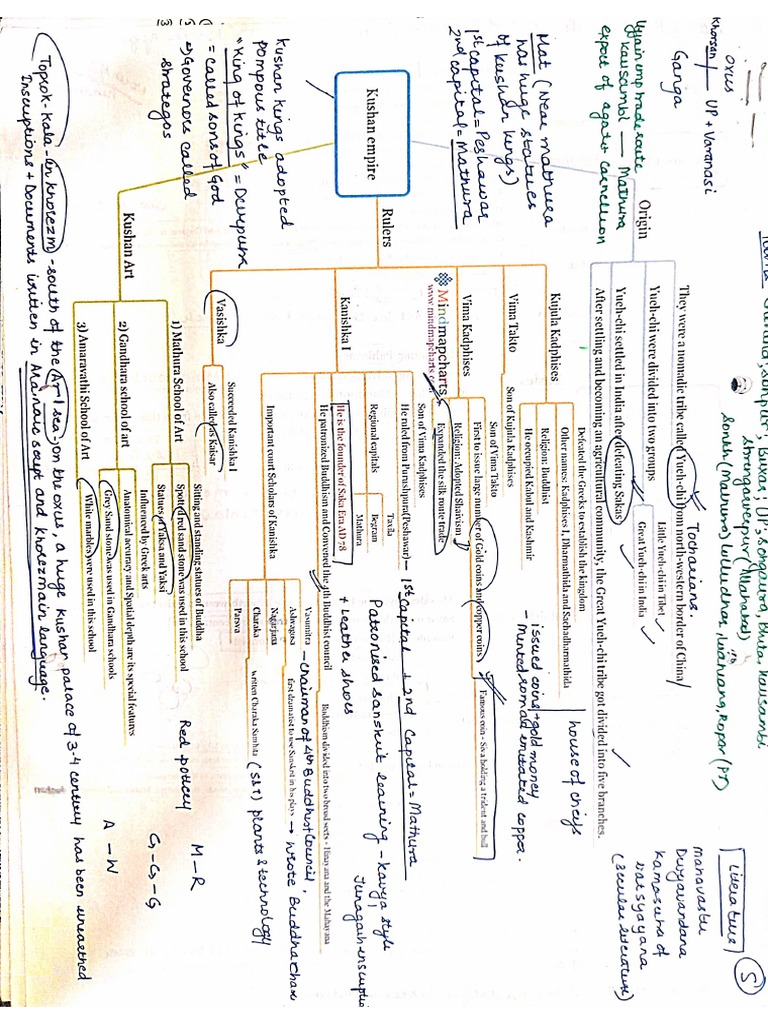 5
Literature
manavastu
Divyavandana
Kamasutra of
vatsyayana
(secular literature)
Buxar,
Sringaverpur (Allahabad)
Sonkh (Mathura)
Ropar (PJ)
OXUS
Khorsan — UP + Varanasi
Ganga
Ujjain imp trade route
Kausambi — Mathura
export of agate carnelion
Mat (Near mathura
has huge statues
of kushan kings)
1st capital = Peshawar
2nd capital = Mathura
Kushan empire
Kushan kings adopted
pompous title
"King of Kings" = Devputra
= called sons of God
⇒ Governors called
strategos
Origin
Tocharians.
They were a nomadic tribe called Yueh-chi from north-western border of China
Yueh-chi were divided into two groups
Little Yueh-chi in Tibet
Great Yueh-chi in India
Yueh-chi settled in India after defeating Sakas
After settling and becoming an agricultural community, the Great Yueh-chi tribe got divided into five branches.
Rulers
Kujula Kadphises
Defeated the Greeks to establish the kingdom
Other names: Kadphises I, Dharmathida and Sachadharmathida
house of cheifs
Religion: Buddhist
He occupied Kabul and Kashmir
issued coins → gold money
- Minted roman imitated copper.
Vima Takto
Son of Kujula Kadphises
Vima Kadphises
Son of Vima Takto
First to issue large number of Gold coins and copper coins
Famous coin - Siva holding a trident and bull
Religion: Adopted Shaivism
Expanded the silk route trade
Mindmapcharts
www.mindmapcharts.com
Kanishka I
Son of Vima Kadphises
He ruled from Purushpura (Peshawar) — 1st Capital + 2nd Capital = Mathura
Regional capitals
Taxila
Begram
Mathura
Patronised sanskrit learning - Kavya style
Junagarh inscriptio
+ Leather shoes
He is the founder of Saka Era AD 78
He patronized Buddhism and Convened the 4th Buddhist council
Buddhism divided into two broad sects - Hinayana and the Mahayana
Important court Scholars of Kanishka
Vasumitra — chairman of 4th Buddhist Council,
Ashvagosa
first dramatist to use Sanskrit in his plays → wrote Buddha Char
Nagarjuna
Charaka
written Charaka Samhita (S&T) plants & technology
Parsva
Vasishka
Succeeded Kanishka I
Also called as Kaisar
Kushan Art
1) Mathura School of Art
Sitting and standing statues of Buddha
Spotted red sand stone was used in this school
Statues of Yaksa and Yaksi
Red pottery
M - R
2) Gandhara school of art
Influenced by Greek arts
Anatomical accuracy and Spatial depth are its special features
Grey Sand stone was used in Gandhara schools
G - GS - G
3) Amaravathi School of Art
White marbles were used in this school
A - W
Toprok-Kala - in Khorezm - south of the Aral sea - on the oxus, a huge kushan palace of 3-4 century has been unearthed
Inscriptions + Documents written in Aramaic script and khorezmain language.